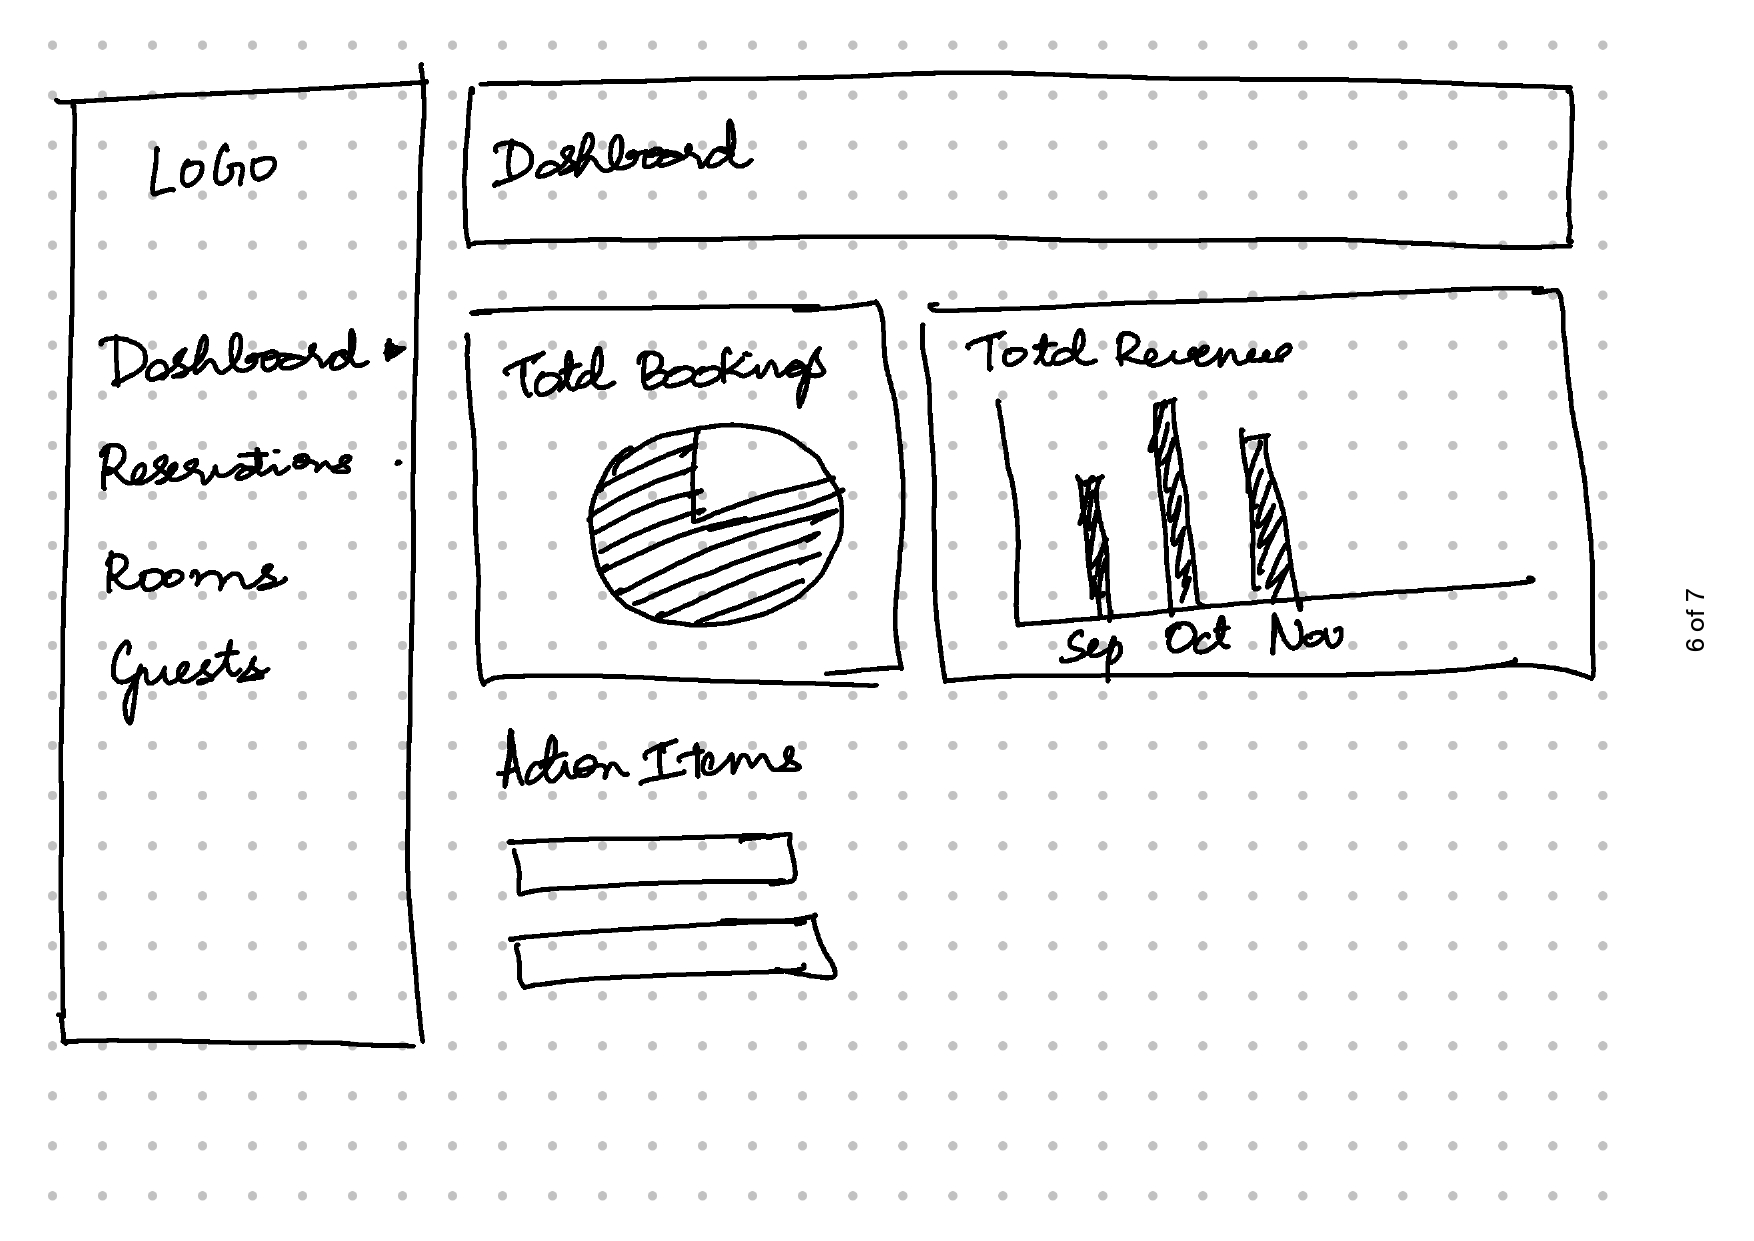 LOGO
Dashboard
Reservations
Rooms
Guests
Dashboard
Total Bookings
Total Revenue
Sep Oct Nov
Action Items
6 of 7